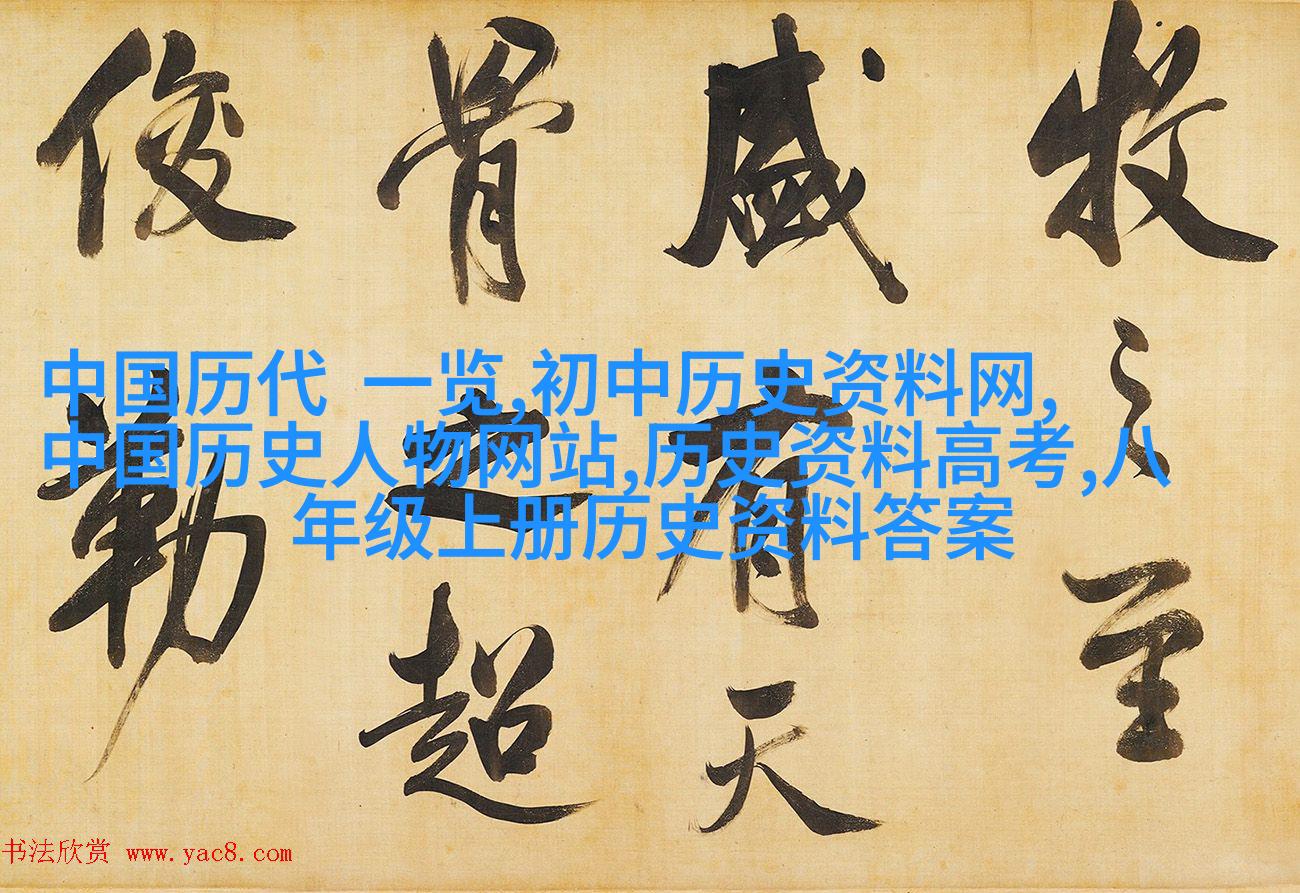 牧之至
盛有天
骨之超
俊勒
中国历代 一览,初中历史资料网,
中国历史人物网站,历史资料高考,八
年级上册历史资料答案
书法欣赏 www.yac8.com